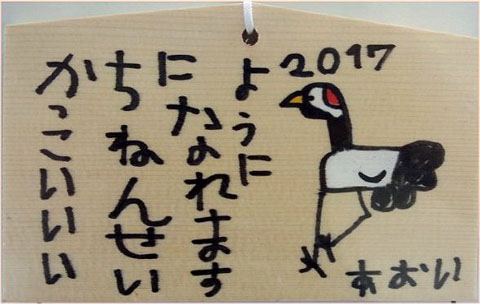 かっこいいい
ちねんせい
になれます
ように
2017
あおい